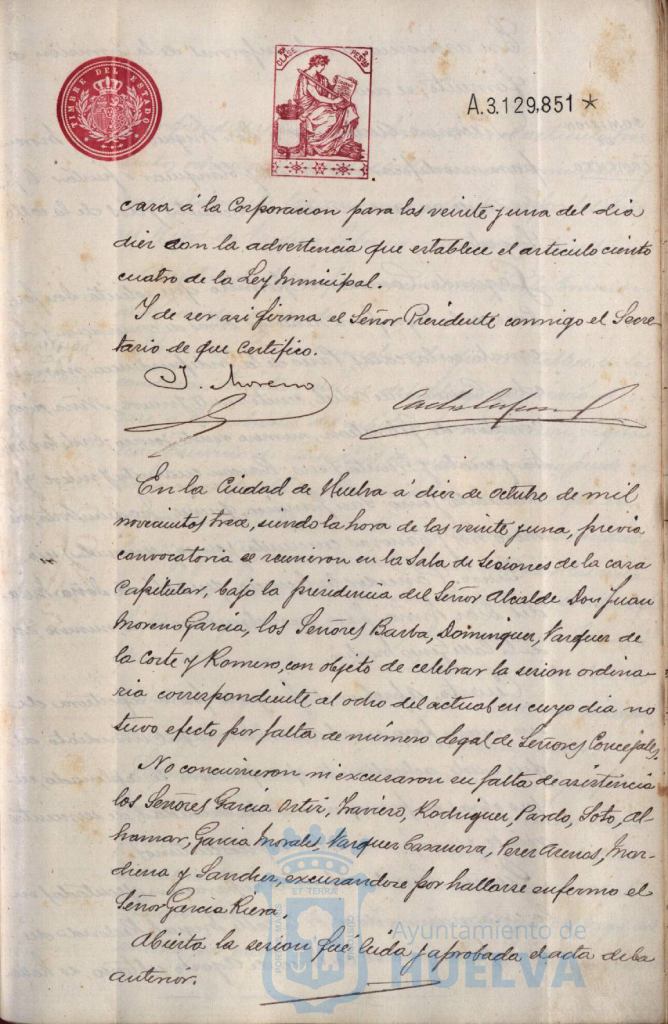 TIMBRE DEL ESTADO
CLASE
PESETAS
A.3.129,851 *
cara á la Corporacion para las veinte y una del dia
diez con la advertencia que establece el articulo ciento
cuatro de la Ley Municipal.
Y de ser asi firma el Señor Presidente conmigo el Secre-
tario de que Certifico.
J. Moreno
En la Ciudad de Huelva á diez de Octubre de mil
novecientos trece, siendo la hora de las veinte y una, previa
convocatoria se reunieron en la Sala de Sesiones de la casa
Capitular, bajo la presidencia del Señor Alcalde Don Juan
Moreno Garcia, los Señores Barba, Dominguez, Vazquez de
la Corte y Romero, con objeto de celebrar la sesion ordina-
ria correspondiente al ocho del actual en cuyo dia no
tuvo efecto por falta de número legal de Señores Concejales.
No concurrieron ni excusaron su falta de asistencia
los Señores Garcia Ortiz, Traviero, Rodriguez, Pardo, Soto, Al-
hamar, Garcia Morales, Vazquez Casanova, Perez Arenas, Mar-
chena y Sanchez, excusandose por hallarse enfermo el
Señor Garcia Riera.
Abierta la sesion fué leida y aprobada el acta de la
anterior.
PORTUS MARIS ET TERRAE CUSTODIA
Ayuntamiento de
HUELVA